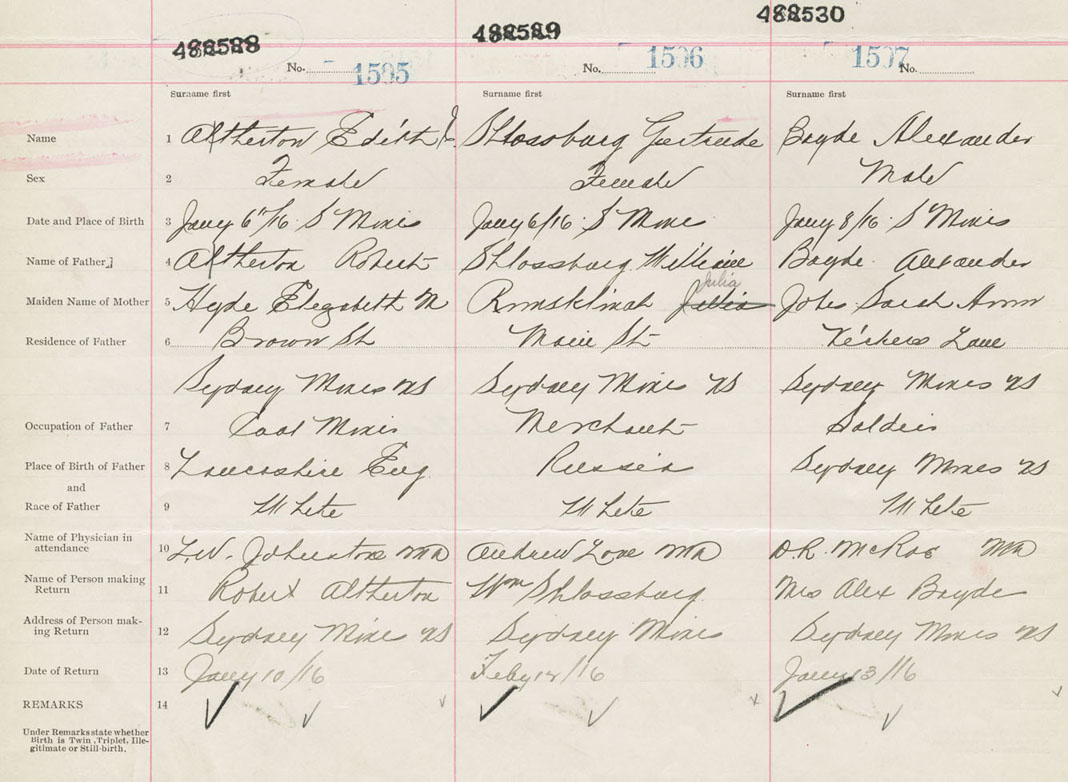 488528 488529 488530
No. 1595 No. 1596 1597 No.
Surname first Surname first Surname first
Name 1 Altherton Edith J. Shlossburg Gertrude Boyde Alexander
Sex 2 Female Female Male
Date and Place of Birth 3 Jany 6"/16 S Mines Jany 6/16 S Mines Jany 8/16 S Mines
Name of Father 4 Altherton Robert Shlossburg William Boyde Alexander
Julia
Maiden Name of Mother 5 Hyde Elizabeth M Julia Sarah Ann
Residence of Father 6 Brown St Main St Lane
Sydney Mines NS Sydney Mines NS Sydney Mines NS
Occupation of Father 7 Coal Miner Merchant Soldier
Place of Birth of Father 8 Lancashire Eng Russia Sydney Mines NS
and
Race of Father 9 White White White
Name of Physician in
attendance 10 L.W. Johnstone MD Andrew Love MD D.R. McRae MD
Name of Person making
Return 11 Robert Altherton Wm Shlossburg Mrs Alex Boyde
Address of Person mak-
ing Return 12 Sydney Mines NS Sydney Mines Sydney Mines NS
Date of Return 13 Jany 10/16 Feby /16 Jany 13/16
REMARKS 14
Under Remarks state whether
Birth is Twin, Triplet, Ille-
gitimate or Still-birth.